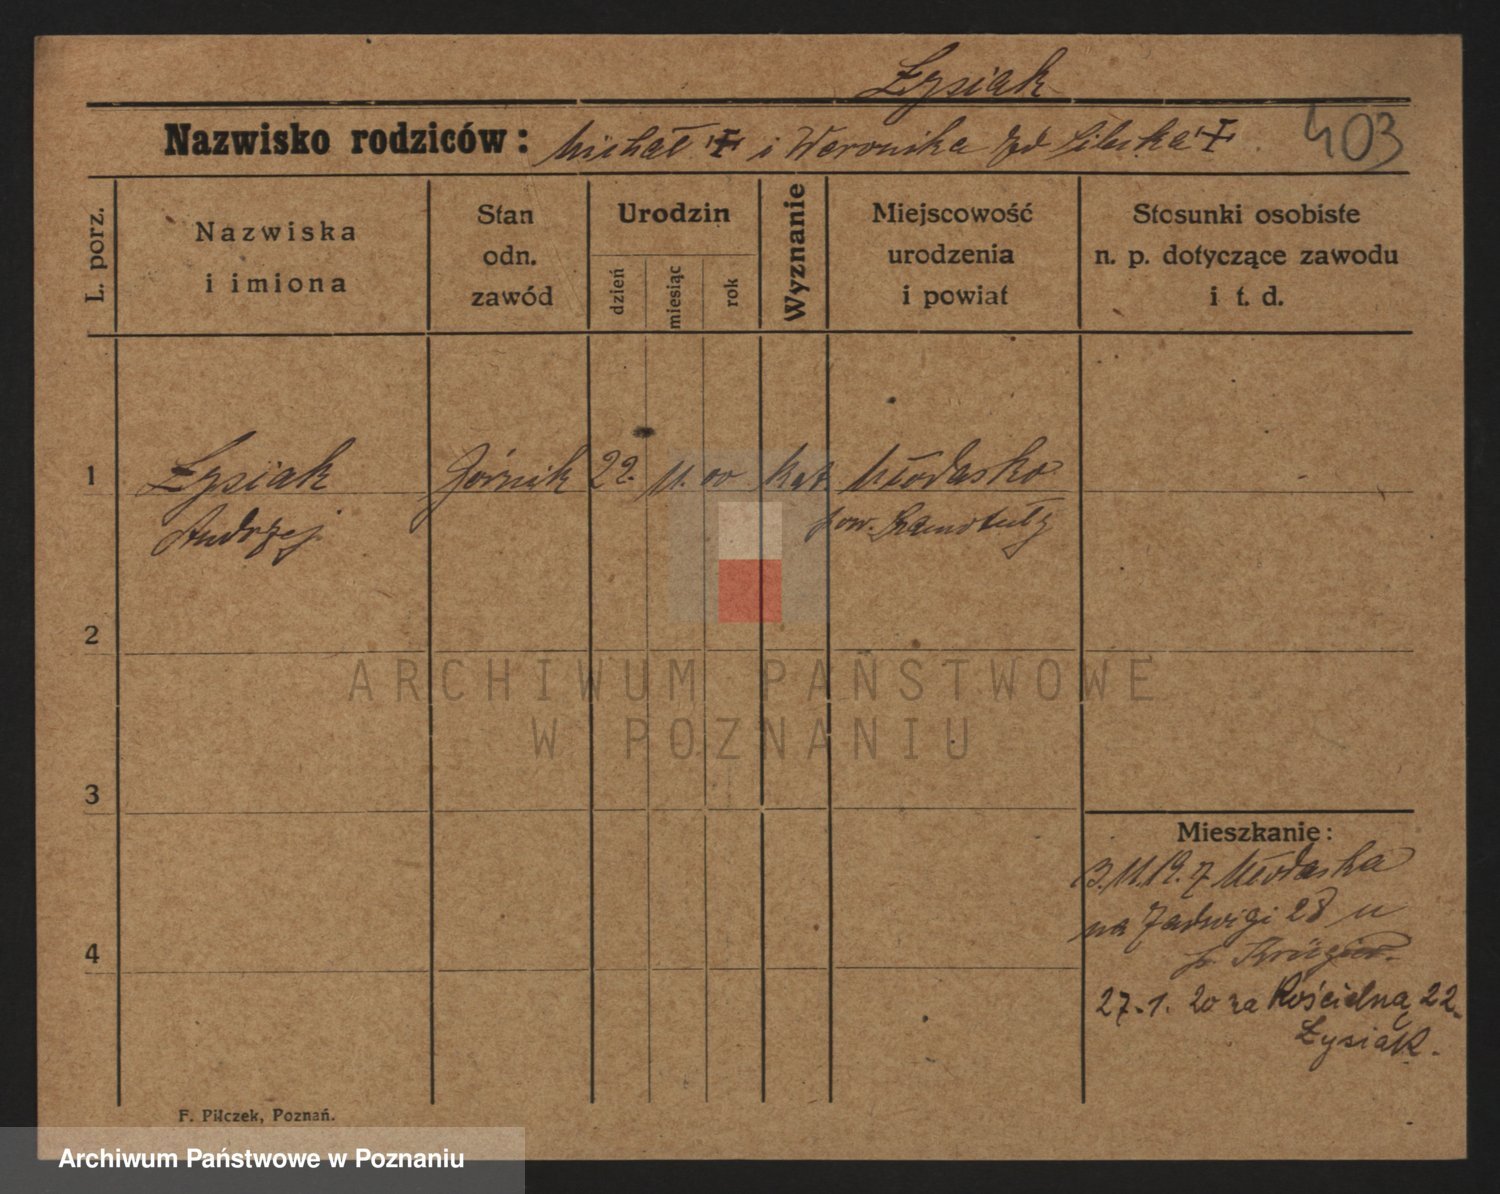 Łysiak
Nazwisko rodziców: Michał † i Weronika † 403
L. porz.
Nazwiska
i imiona
Stan
odn.
zawód
Urodzin
dzień
miesiąc
rok
Wyznanie
Miejscowość
urodzenia
i powiat
Stosunki osobiste
n. p. dotyczące zawodu
i t. d.
1 Łysiak Górnik 22. 11. 00 kat. Młodasko
Andrzej pow. Szamotuły
2
ARCHIWUM PAŃSTWOWE
W POZNANIU
3
Mieszkanie:
3.11.19. z Młodaska
na Jadwigi 28 u
p. Krüger.
4
27. 1. 20 na Kościelną 22
Łysiak.
F. Pilczek, Poznań.
Archiwum Państwowe w Poznaniu